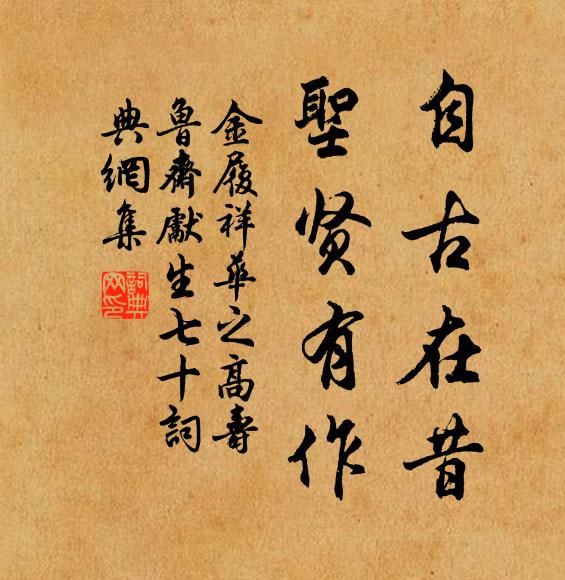 自古在昔
聖贤有作
金履祥華之高壽
魯齋獻生七十詞
典網集
詞典
网印